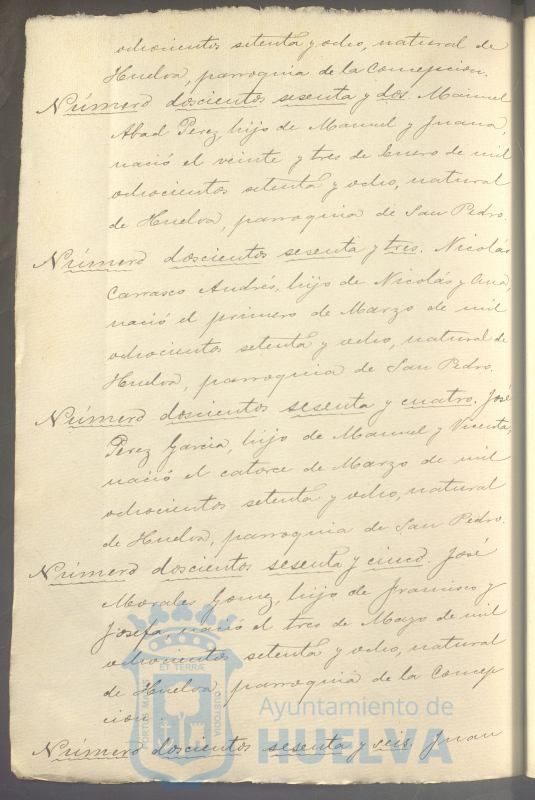 ochocientos setenta y ocho, natural de
Huelva, parroquia de la Concepcion.
Número doscientos sesenta y dos. Manuel
Abad Perez, hijo de Manuel y Juana,
nació el veinte y tres de Enero de mil
ochocientos setenta y ocho, natural
de Huelva, parroquia de San Pedro.
Número doscientos sesenta y tres. Nicolás
Carrasco Andrés, hijo de Nicolás y Ana,
nació el primero de Marzo de mil
ochocientos setenta y ocho, natural de
Huelva, parroquia de San Pedro.
Número doscientos sesenta y cuatro. José
Perez Garcia, hijo de Manuel y Vicenta,
nació el catorce de Marzo de mil
ochocientos setenta y ocho, natural
de Huelva, parroquia de San Pedro.
Número doscientos sesenta y cinco. José
Morales Gomez, hijo de Francisco y
Josefa, nació el tres de Mayo de mil
ochocientos setenta y ocho, natural
de Huelva, parroquia de la Concep
cion.
Número doscientos sesenta y seis. Juan
PORTUS MARIS ET TERRÆ CUSTODIA
Ayuntamiento de
HUELVA